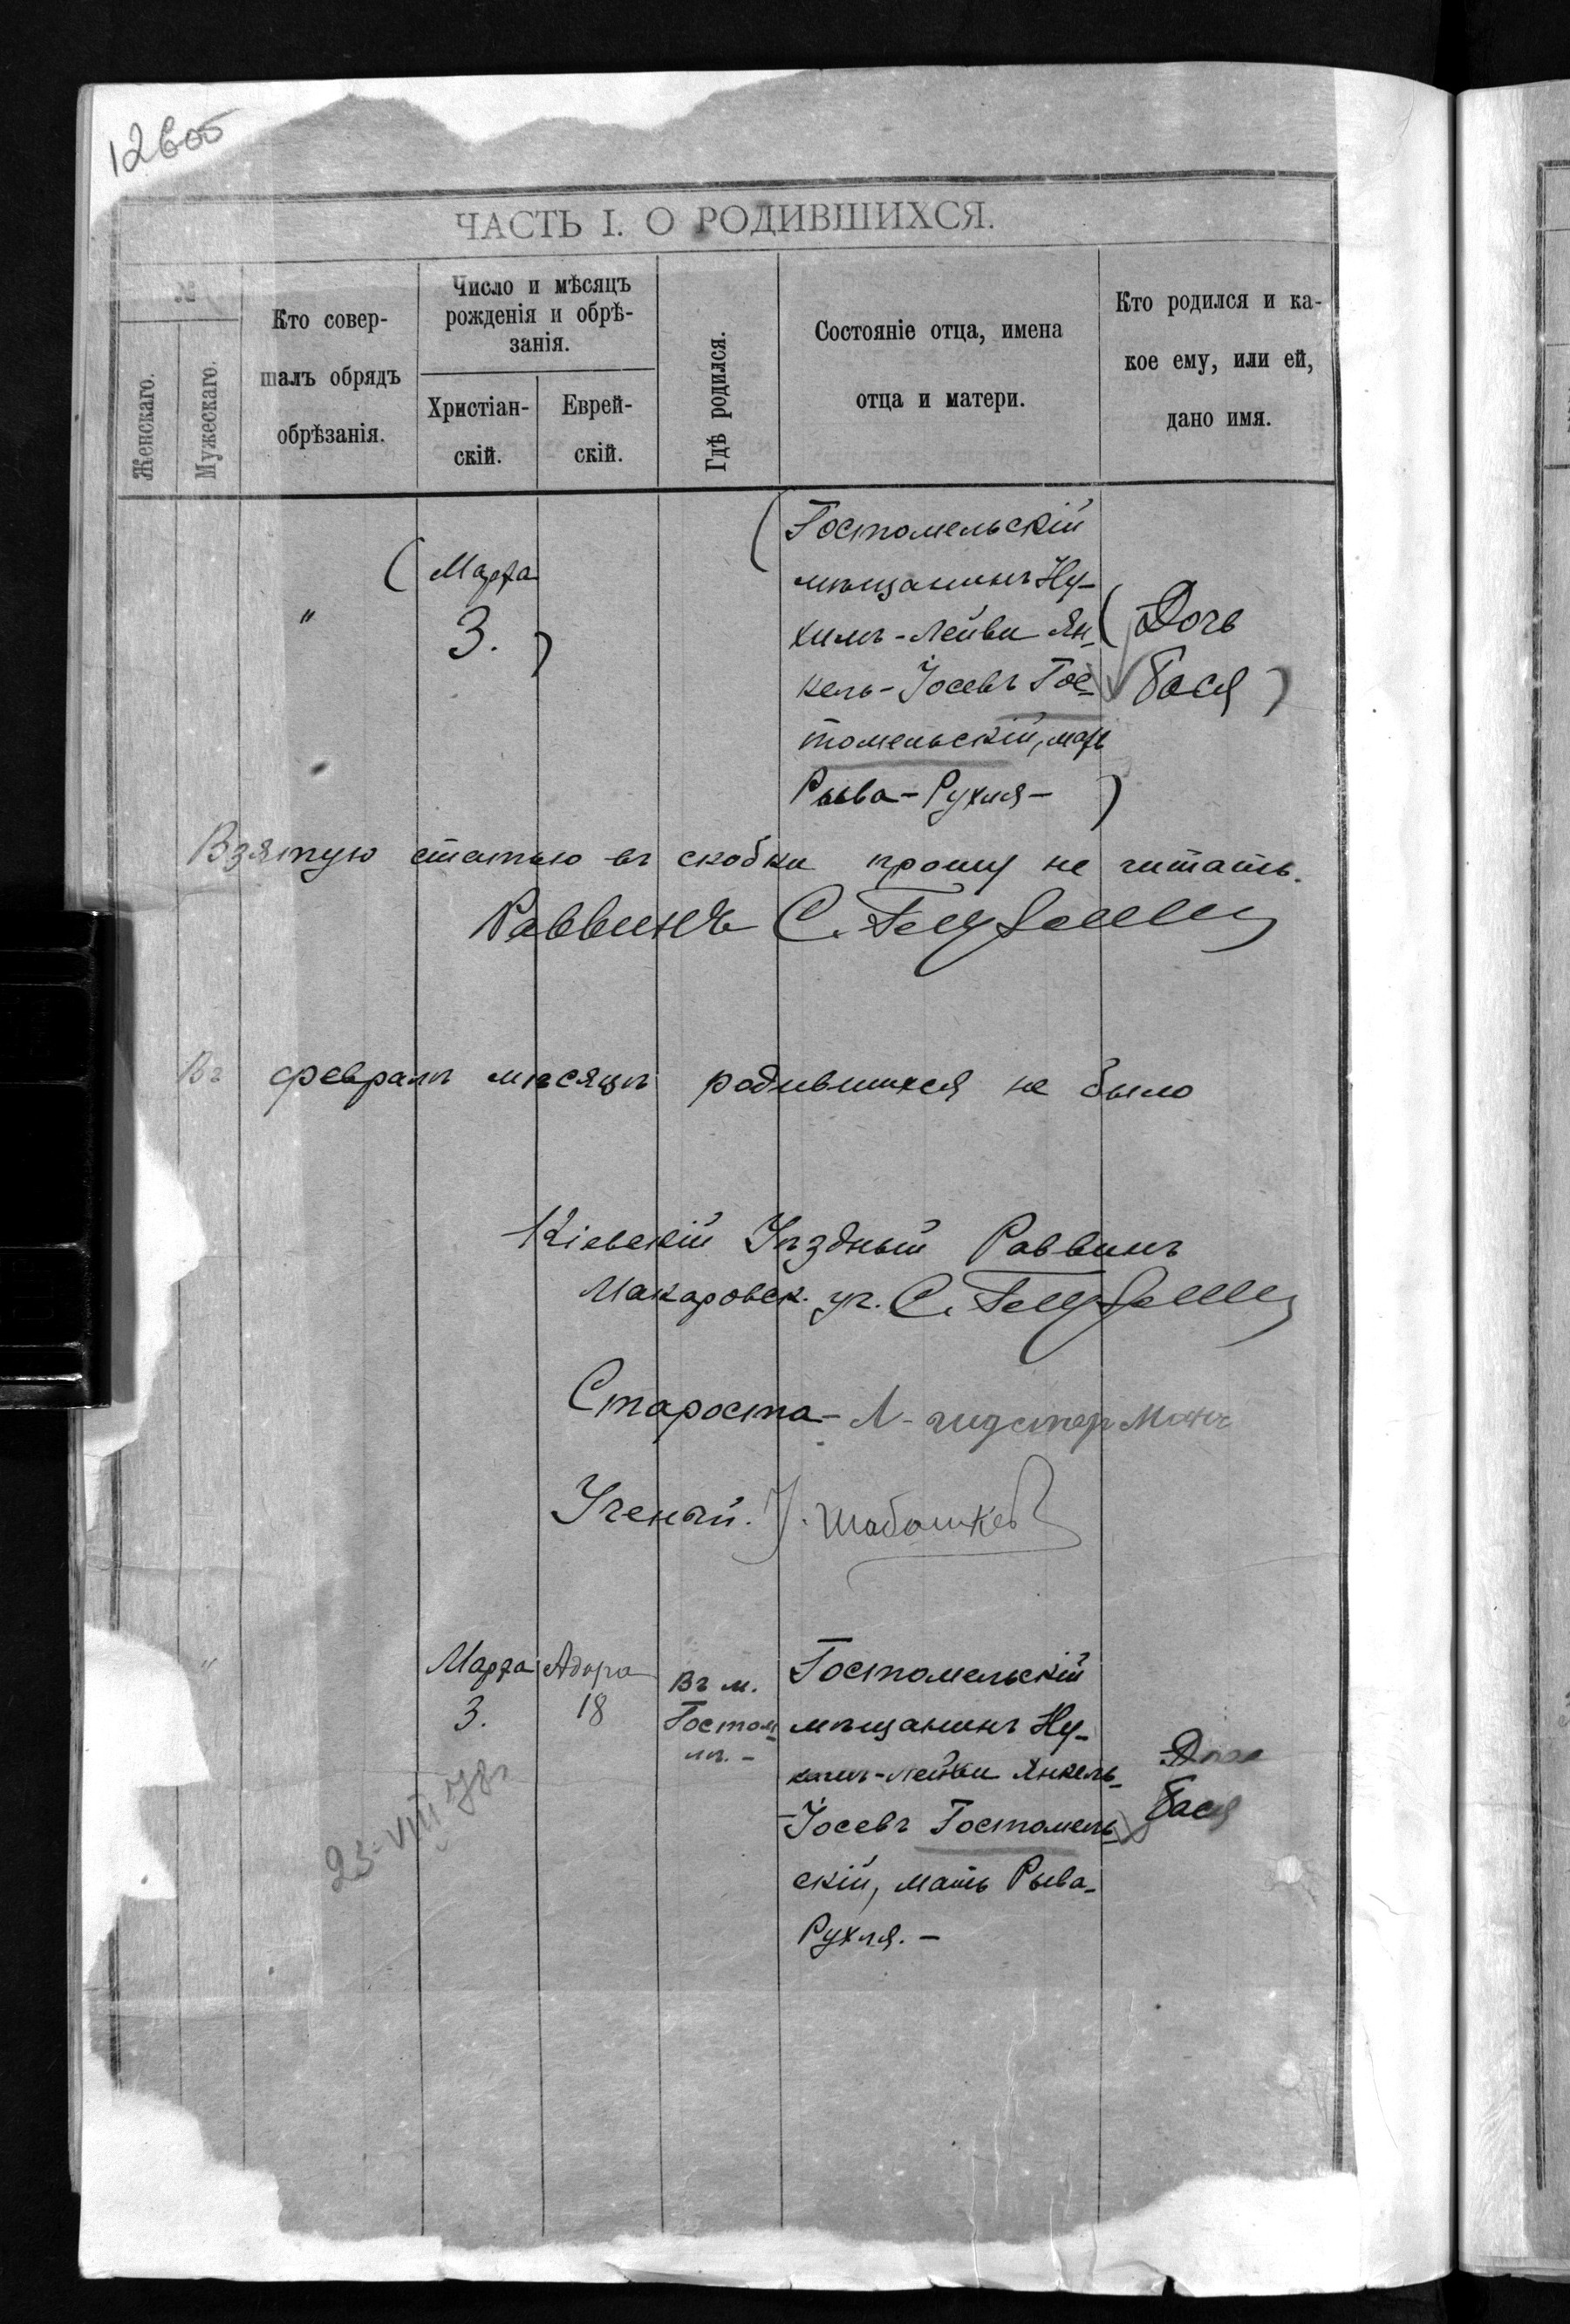 12 об
ЧАСТЬ I. О РОДИВШИХСЯ.
№
Женскаго.
Мужескаго.
Кто совер-
шалъ обрядъ
обрѣзанія.
Число и мѣсяцъ
рожденія и обрѣ-
занія.
Христіан-
скій.
Еврей-
скій.
Гдѣ родился.
Состояніе отца, имена
отца и матери.
Кто родился и ка-
кое ему, или ей,
дано имя.
"
( Марта
3. )
( Гостомельскій
мѣщанинъ Ну-
химъ-Лейви Ян-
кель-Іосевъ Гос-
томельскій, мать
Рыва-Рухля- )
( Дочь
Бася )
Взятую статью въ скобки прошу не читать.
Раввинъ С.
Въ февралѣ мѣсяцѣ родившихся не было
Кіевскій Уѣздный Раввинъ
Макаровск. уч. С.
Староста-
Ученый. Шабашкев
"
Марта
3.
Адора
18
Въ м.
Гостом-
лѣ.-
Гостомельскій
мѣщанинъ Ну-
химъ-Лейви Янкель-
-Іосевъ Гостомель-
скій, мать Рыва-
Рухля.-
Дочь
Бася
23-VIII 78г